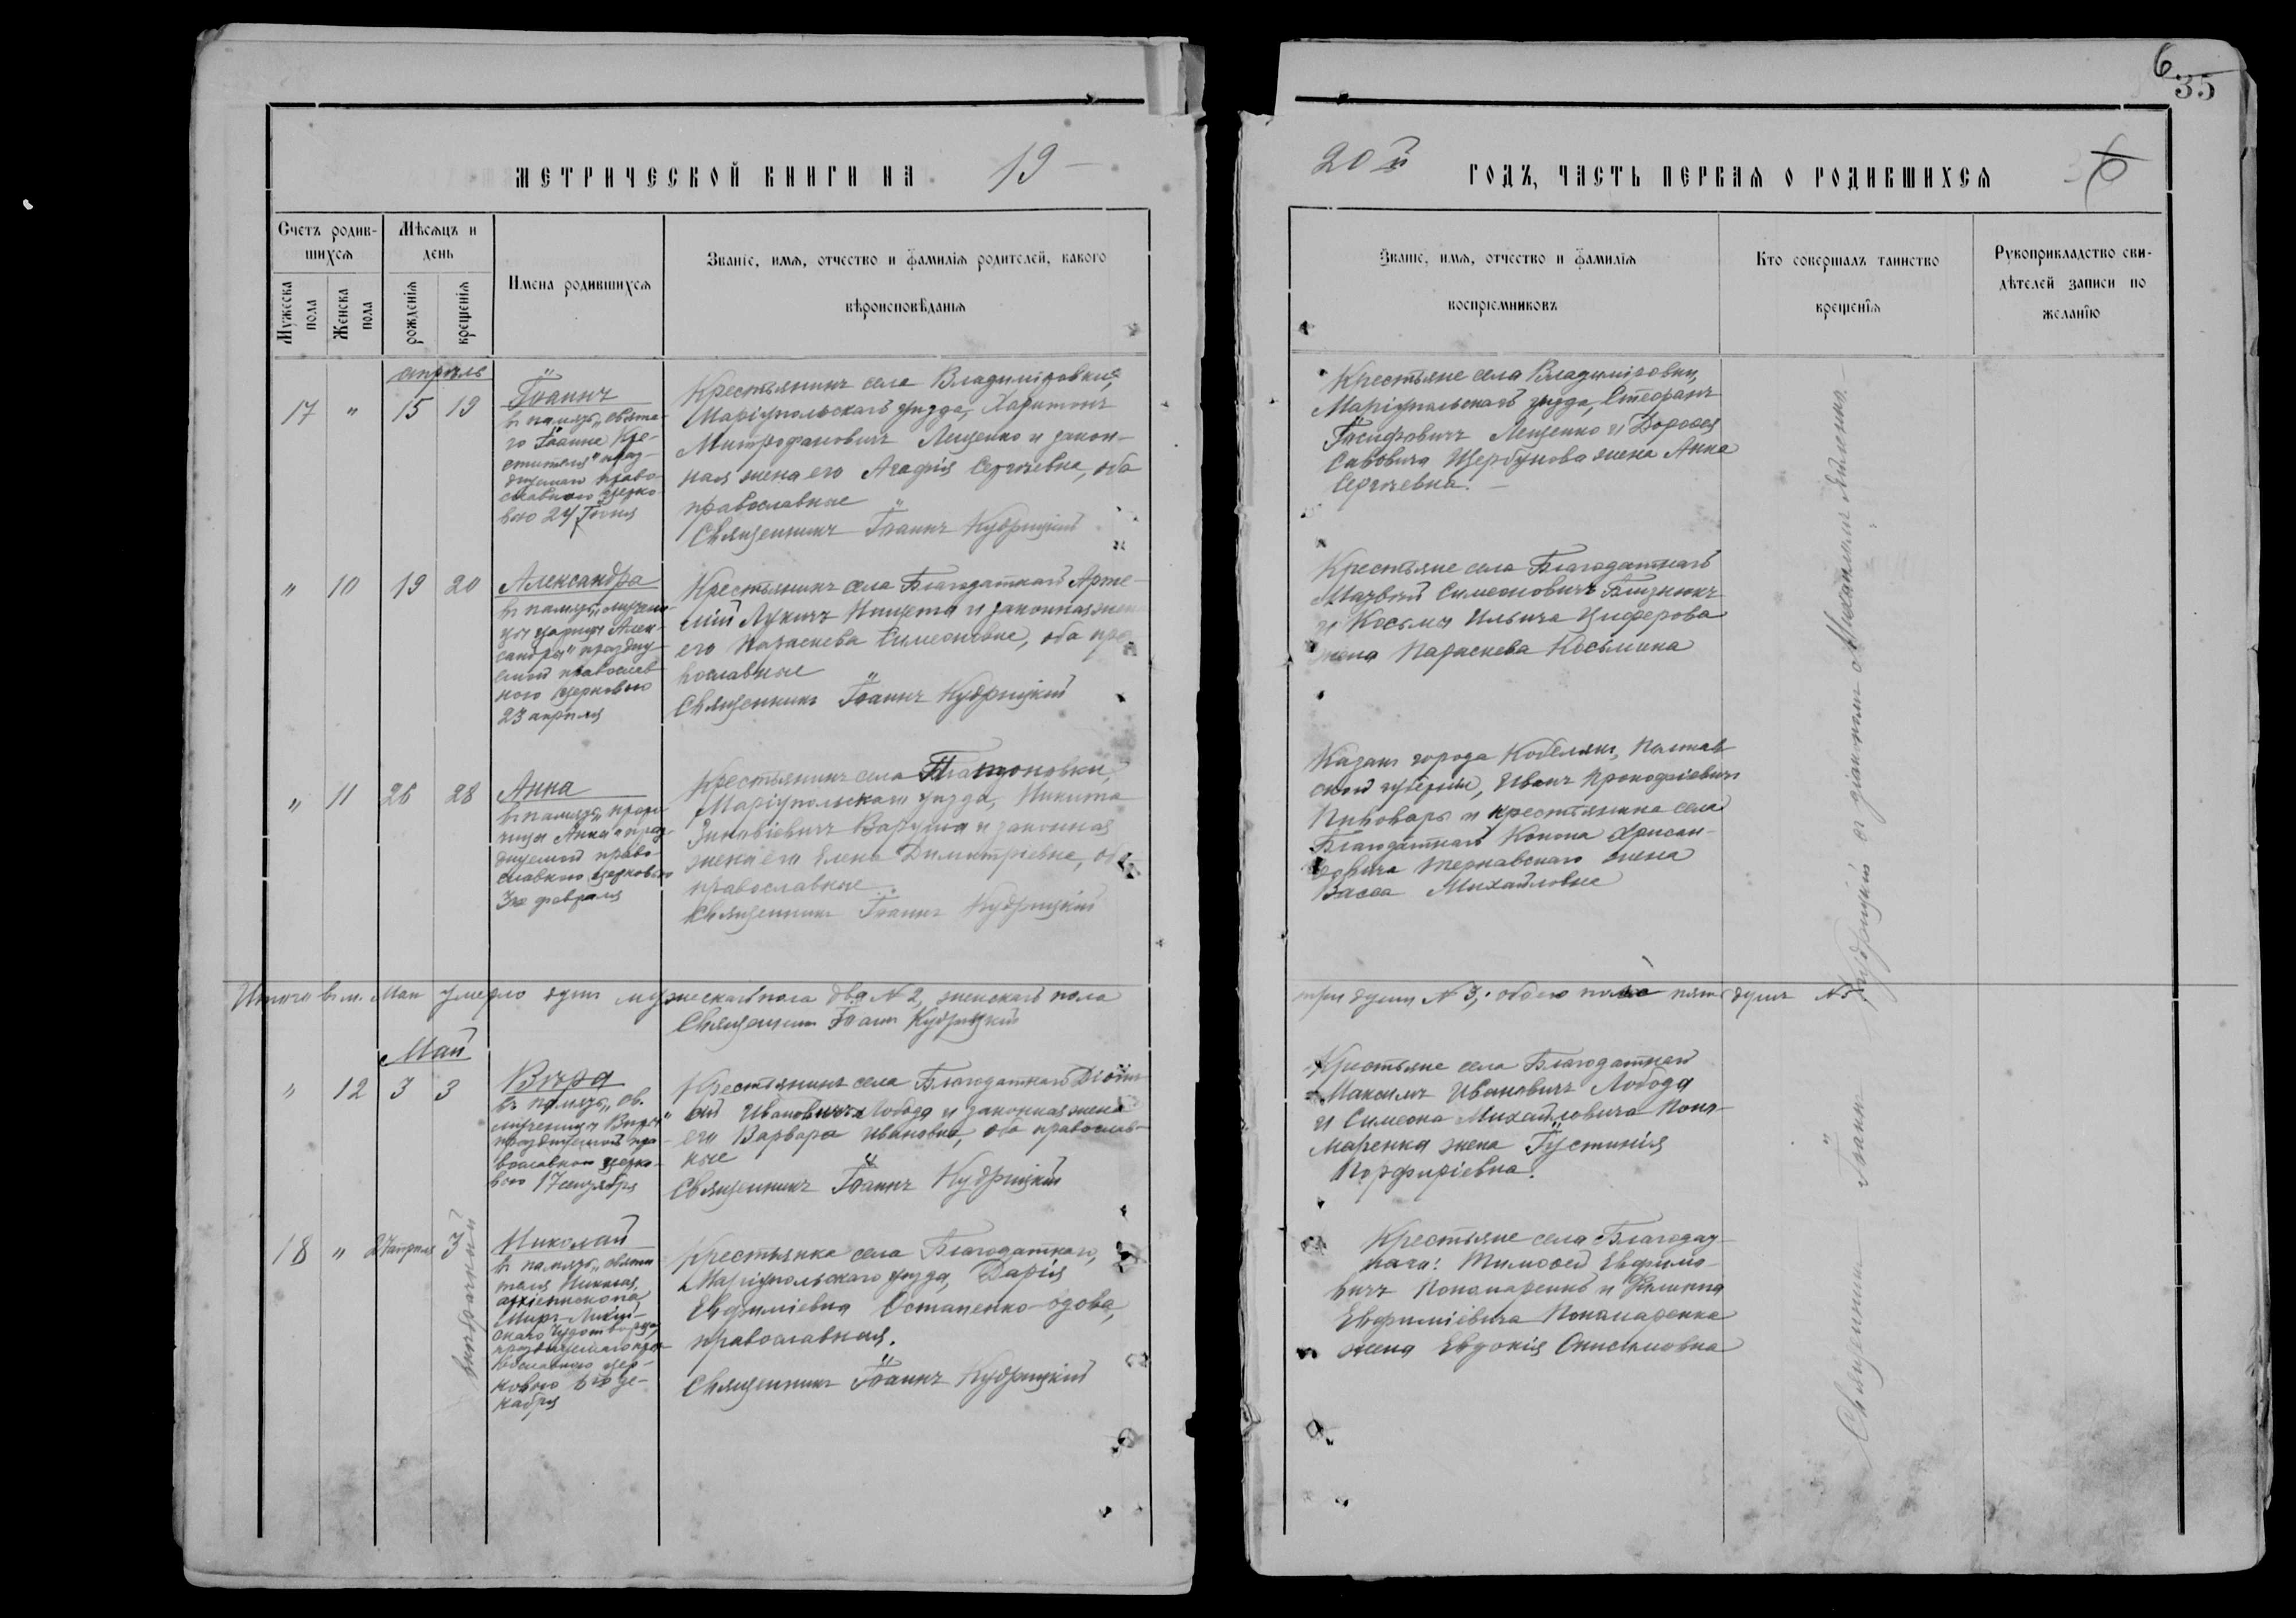 6
35
МЕТРИЧЕСКОЙ КНИГИ НА 19
Счетъ родив-
шихся
Мѣсяцъ и
день
Мужеска
пола
Женска
пола
рожденія
крещенія
Имена родившихся
Званіе, имя, отчество и фамилія родителей, какого
вѣроисповѣданія
апрѣль
17 " 15 19
Іоаннъ
въ память „свята-
го Іоанна Кре-
стителя" праз-
днуемаго право-
славною церко-
вью 24 Іюня
Крестьянинъ села Владиміровки,
Маріупольскаго уѣзда, Харитонъ
Митрофановичъ Лещенко и закон-
ная жена его Агафія Сергѣевна, оба
православные
Священникъ Іоаннъ Кудрицкій
" 10 19 20
Александра
въ память „мучени-
цы царицы Алек-
сандры" праздну-
емой православ-
ною церковью
23 апрѣля
Крестьянинъ села Благодатнаго Арте-
мій Лукичъ и законная жена
его Параскева Симеоновна, оба пра-
вославные
Священникъ Іоаннъ Кудрицкій
" 11 26 28
Анна
въ память „проро-
чицы Анны" праз-
днуемой право-
славною церковью
3го февраля
Крестьянинъ села Платоновки,
Маріупольскаго уѣзда, Никита
Зиновіевичъ Варуша и законная
жена его Елена Димитріевна, оба
православные
Священникъ Іоаннъ Кудрицкій
Итого въ м. Маи умерло душъ мужескаго пола два N 2, женскаго пола
Священникъ Іоаннъ Кудрицкій
Май
" 12 3 3
Вѣра
въ память „св.
мученицы Вѣры"
празднуемой пра-
вославною церко-
вью 17 сентября
Крестьянинъ села Благодатнаго
Ивановичъ Лобода и законная жена
его Варвара Ивановна, оба православ-
ные
Священникъ Іоаннъ Кудрицкій
18 " 27 апрѣля 3
внебрачный
Николай
въ память „святи-
теля Николая,
архіепископа
Миръ-Ликій-
скаго Чудотворца,
празднуемаго пра-
вославною цер-
ковью 6го де-
кабря
Крестьянка села Благодатнаго,
Маріупольскаго уѣзда, Дарія
Евфиміевна Остапенко вдова,
православная.
Священникъ Іоаннъ Кудрицкій
20й ГОДЪ, ЧАСТЬ ПЕРВАЯ О РОДИВШИХСЯ
Званіе, имя, отчество и фамилія
воспріемниковъ
Кто совершалъ таинство
крещенія
Рукоприкладство сви-
дѣтелей записи по
желанію
Крестьяне села Владиміровки,
Маріупольскаго уѣзда, Стефанъ
Іосифовичъ Лещенко и Дорофея
Савовича Щербунова жена Анна
Сергѣевна.
Крестьяне села Благодатнаго
Матвѣй Симеоновичъ Близнюкъ
и Косьмы Ильича Циферова
жена Параскева Косьмина
Казакъ города Кобелякъ, Полтав-
ской губерніи, Иванъ Прокофіевичъ
Пивоваръ и крестьянина села
Благодатнаго Конона Хрисан-
фовича Тернавскаго жена
Васса Михайловна
три души N 3, обоего пола пять душъ N 5
Крестьяне села Благодатнаго
Максимъ Ивановичъ Лобода
и Симеона Михайловича Поно-
маренка жена Іустинія
Порфиріевна.
Крестьяне села Благодат-
наго: Тимофей Евфимо-
вичъ Пономаренко и Филиппа
Евфиміевича Пономаренка
жена Евдокія Онисимовна
Священникъ Іоаннъ Кудрицкій съ діакономъ Михаиломъ